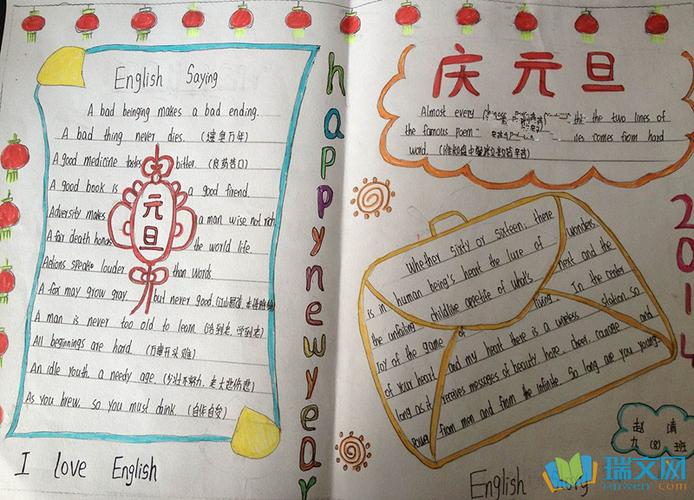 English Saying
A bad beinging makes a bad ending.
A bad thing never dies. (遗臭万年)
A good medicine tastes bitter. (良药苦口)
A good book is a good friend.
Adversity makes a man wise not rich
A far death honor the world life
Actions speak louder than words
A fox may grow gray but never good.
A man is never too old to learn. (活到老,学到老)
All beginnings are hard. (万事开头难)
An idle youth, a needy age. (少壮不努力,老大徒伤悲)
As you brew, so you must drink. (自作自受)
I love English
元旦
happynewyear
庆元旦
Almost every the two lines of
the famous poem comes from hard
word.
Whether sixty or sixteen, there
is in human being's heart the lure of wonders,
the unfailing childlike appetite of what's next and the
joy of the game of living. In the center
of your heart and my heart there is a wireless station so
long as it receives messages of beauty, hope, cheer, courage and
power from men and from the infinite so long are you young.
2014
赵清
九(8)班
English
瑞文网